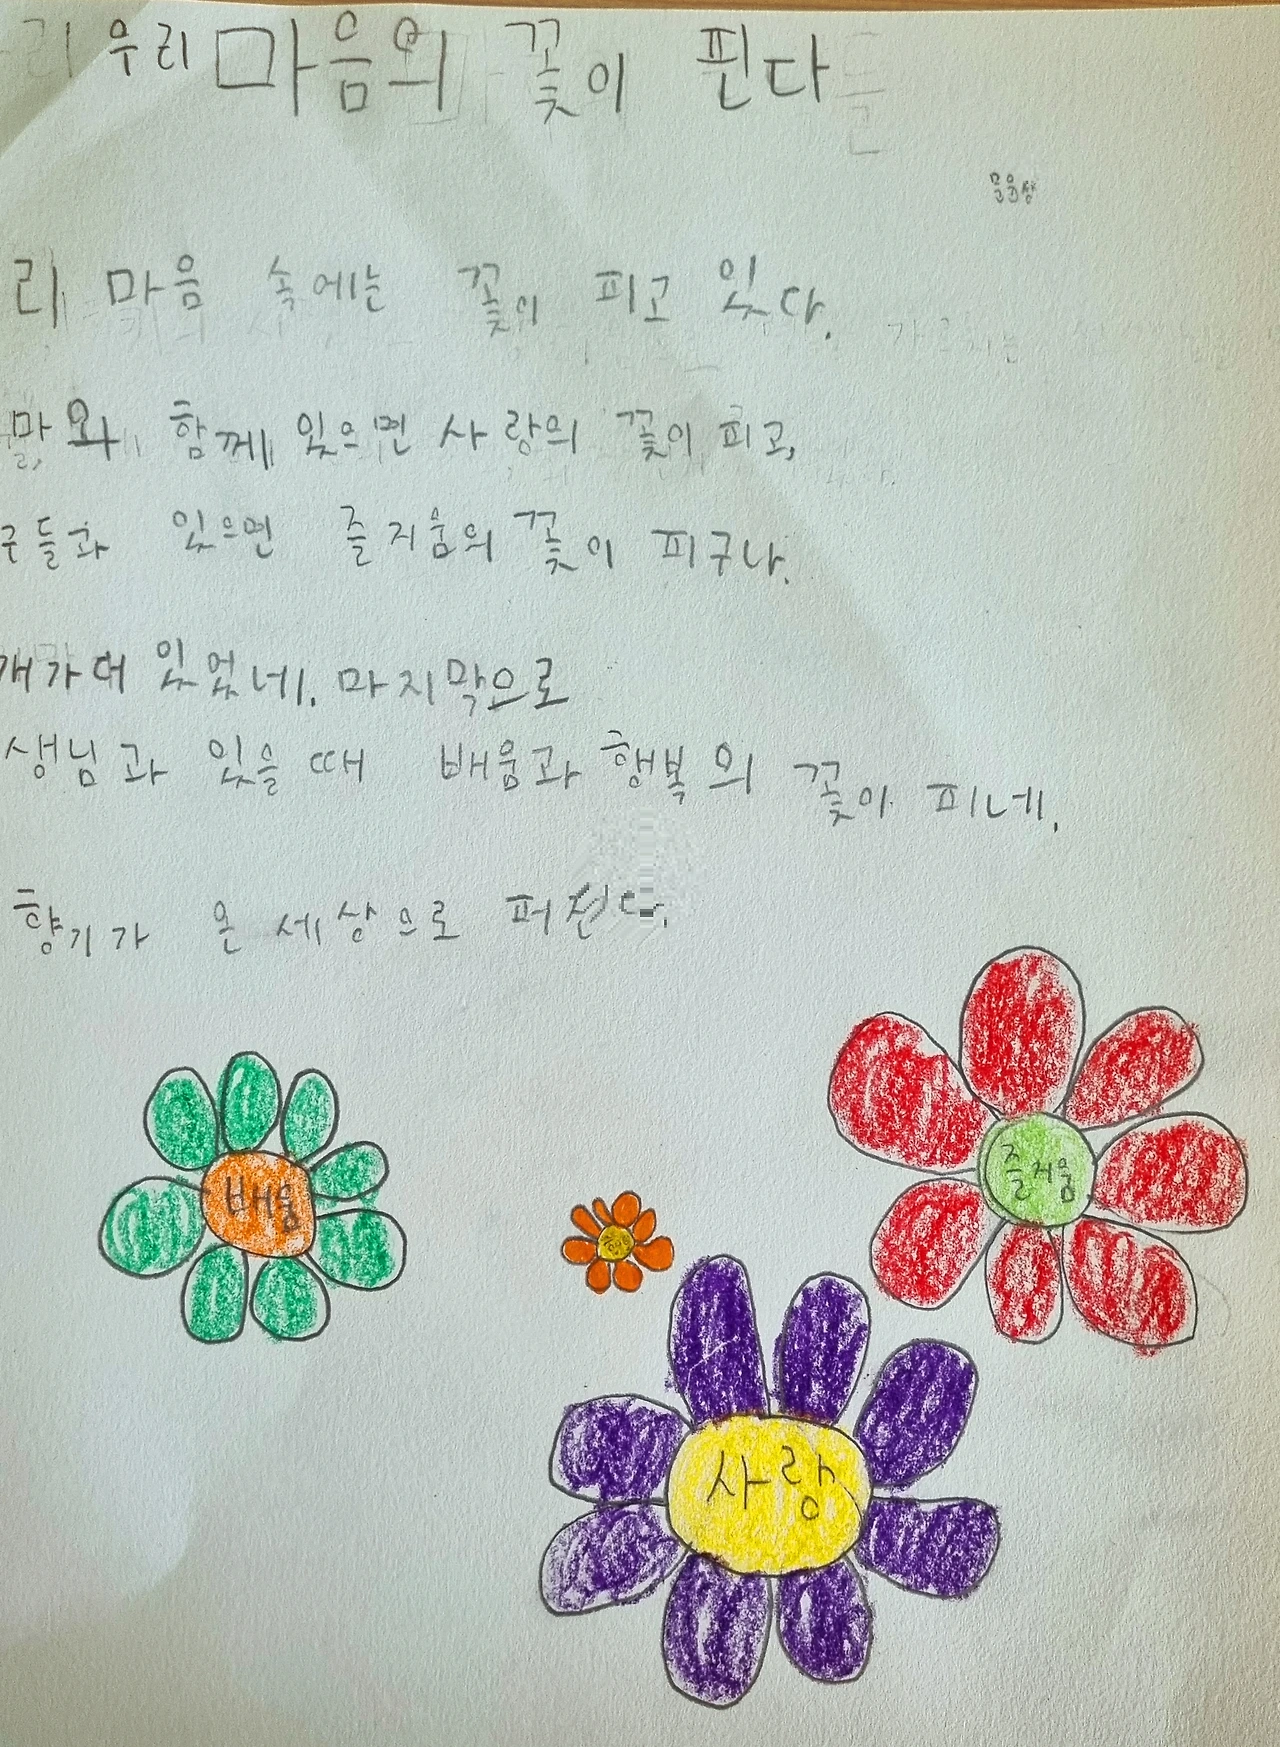 우리 마음의 꽃이 핀다
리 마음 속에는 꽃이 피고 있다.
와 함께 있으면 사랑의 꽃이 피고,
들과 있으면 즐거움의 꽃이 피구나.
개가 더 있었네. 마지막으로
생님과 있을 때 배움과 행복의 꽃이 피네.
향기가 온 세상으로 퍼진다.
배움
즐거움
사랑